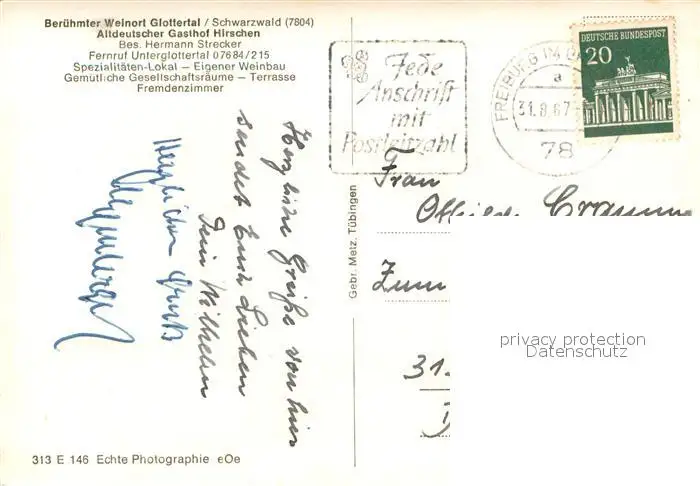 Berühmter Weinort Glottertal / Schwarzwald (7804)
Altdeutscher Gasthof Hirschen
Bes. Hermann Strecker
Fernruf Unterglottertal 07684/215
Spezialitäten-Lokal — Eigener Weinbau
Gemütliche Gesellschaftsräume — Terrasse
Fremdenzimmer
Jede
Anschrift
mit
Postleitzahl
FREIBURG IM
a
31.8.67
78
DEUTSCHE BUNDESPOST
20
Herzliche Grüße von hier
sendet Euch Lieben
Dein Wilhelm
Herzlichen Gruß
Gebr. Metz, Tübingen
Frau
Zum
31.
privacy protection
Datenschutz
313 E 146 Echte Photographie eOe